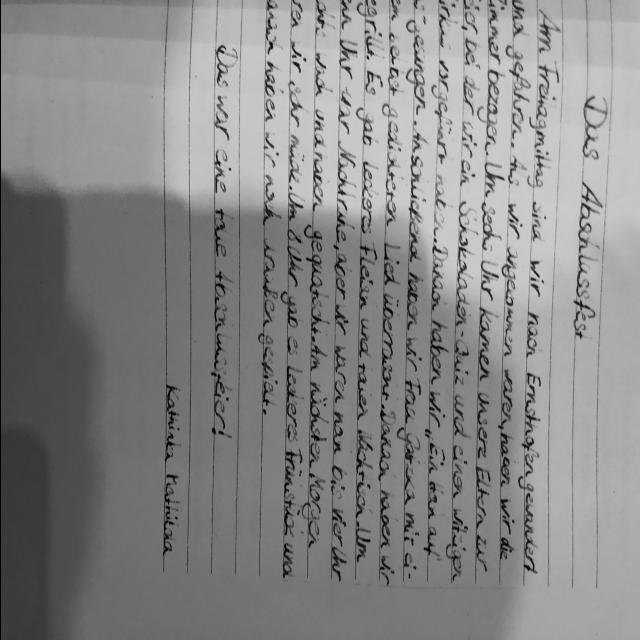 Das Abschlussfest
Am Freitagmittag sind wir nach Ernsthofen gewandert
und gefahren. Als wir angekommen waren, haben wir die
Zimmer bezogen. Um sechs Uhr kamen unsere Eltern zur
Feier, bei der wir ein Schokoladen Quiz und einen witzigen
vorgeführt haben. Danach haben wir „Ein Hoch auf
gesungen. Anschließend haben wir Frau mit ei-
gedichteten Lied überrascht. Danach haben wir
gegrillt. Es gab leckeres Fleisch und tollen Nachtisch. Um
Uhr war Nachtruhe, aber wir waren noch bis vier Uhr
wach und haben gequatscht. Am nächsten Morgen
waren wir sehr müde. Um 8 Uhr gab es leckeres Frühstück und
danach haben wir noch draußen gespielt.
Das war eine tolle Abschlussfeier!